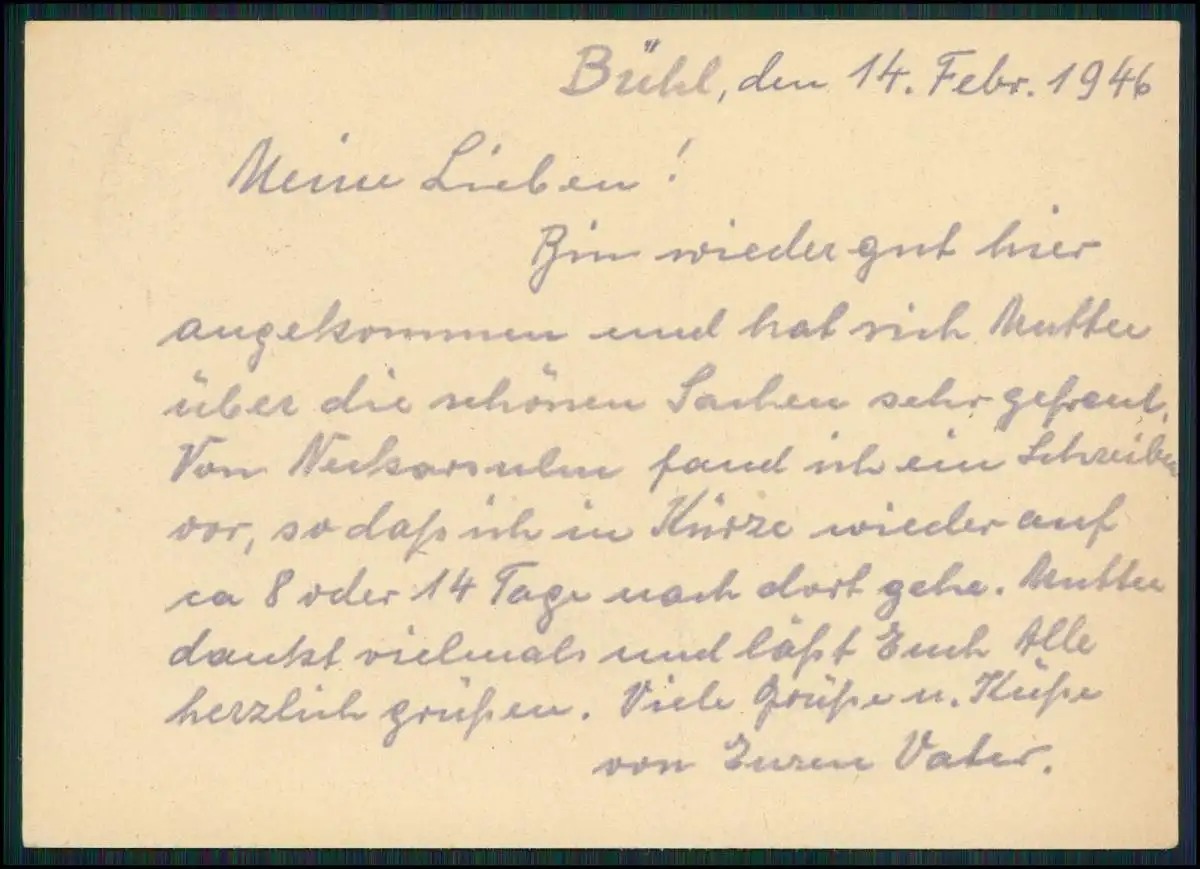 Bühl, den 14. Febr. 1946
Meine Lieben!
Bin wieder gut hier
angekommen und hat sich Mutter
über die schönen Sachen sehr gefreut.
Von Neckarsulm fand ich ein Schreiben
vor, so daß ich in Kürze wieder auf
ca 8 oder 14 Tage nach dort gehe. Mutter
dankt vielmals und läßt Euch Alle
herzlich grüßen. Viele Grüße u. Küße
von Euren Vater.